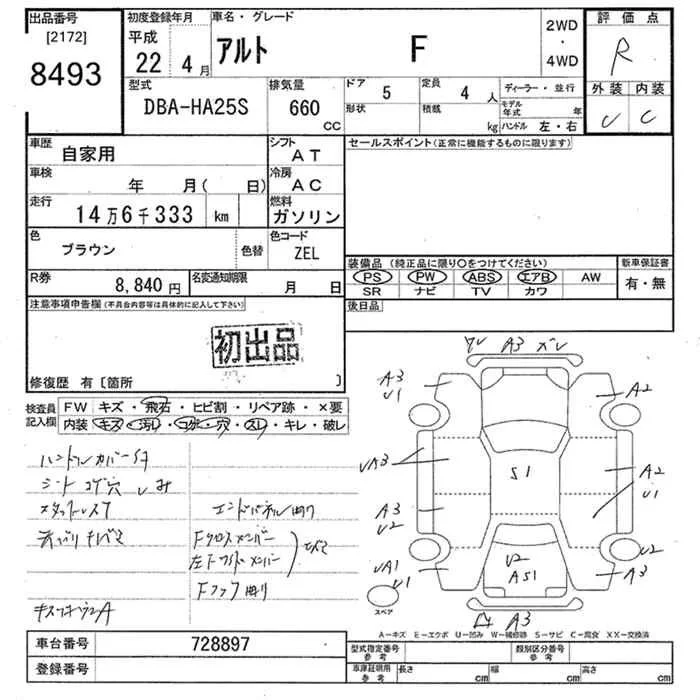 出品番号
[2172]
8493
初度登録年月
平成
22 4月
車名・グレード
アルト F
2WD
・
4WD
評価点
R
外装 内装
C
型式
DBA-HA25S
排気量
660
CC
ドア 5
定員 4 人
ディーラー・並行
形状
積載 kg
モデル年式 年
ハンドル 左・右
車歴
自家用
シフト
AT
セールスポイント(正常に機能するものに限ります)
車検
年 月( 日)
冷房
AC
走行
14万6千333 km
燃料
ガソリン
色
ブラウン
色替
色コード
ZEL
装備品(純正品に限り○をつけてください)
新車保証書
PS PW ABS エアB AW
有・無
SR ナビ TV カワ
R券
8,840円
名変通知期限
月 日
後日品
注意事項申告欄(不具合内容等は具体的に記入して下さい)
初出品
修復歴 有〔箇所 〕
検査員
記入欄
FW キズ・飛石・ヒビ割・リペア跡・×要
内装 キズ・汚レ・コゲ・穴・スレ・キレ・破レ
ハンドルカバーS付
シート コゲ穴 しみ
エンドパネル曲り
Fクロスメンバー
左Fサイドメンバー
A3
A3
U1
A2
UA3
A2
U1
A3
U2
S1
UA1
U1
U2
AS1
U2
A3
A3
スペア
A−キズ E−エクボ U−凹み W−補修跡 S−サビ C−腐食 XX−交換済
車台番号
728897
登録番号
型式指定番号
参考
類別区分番号
参考
車庫証明用
参考
長さ cm
幅 cm
高さ cm